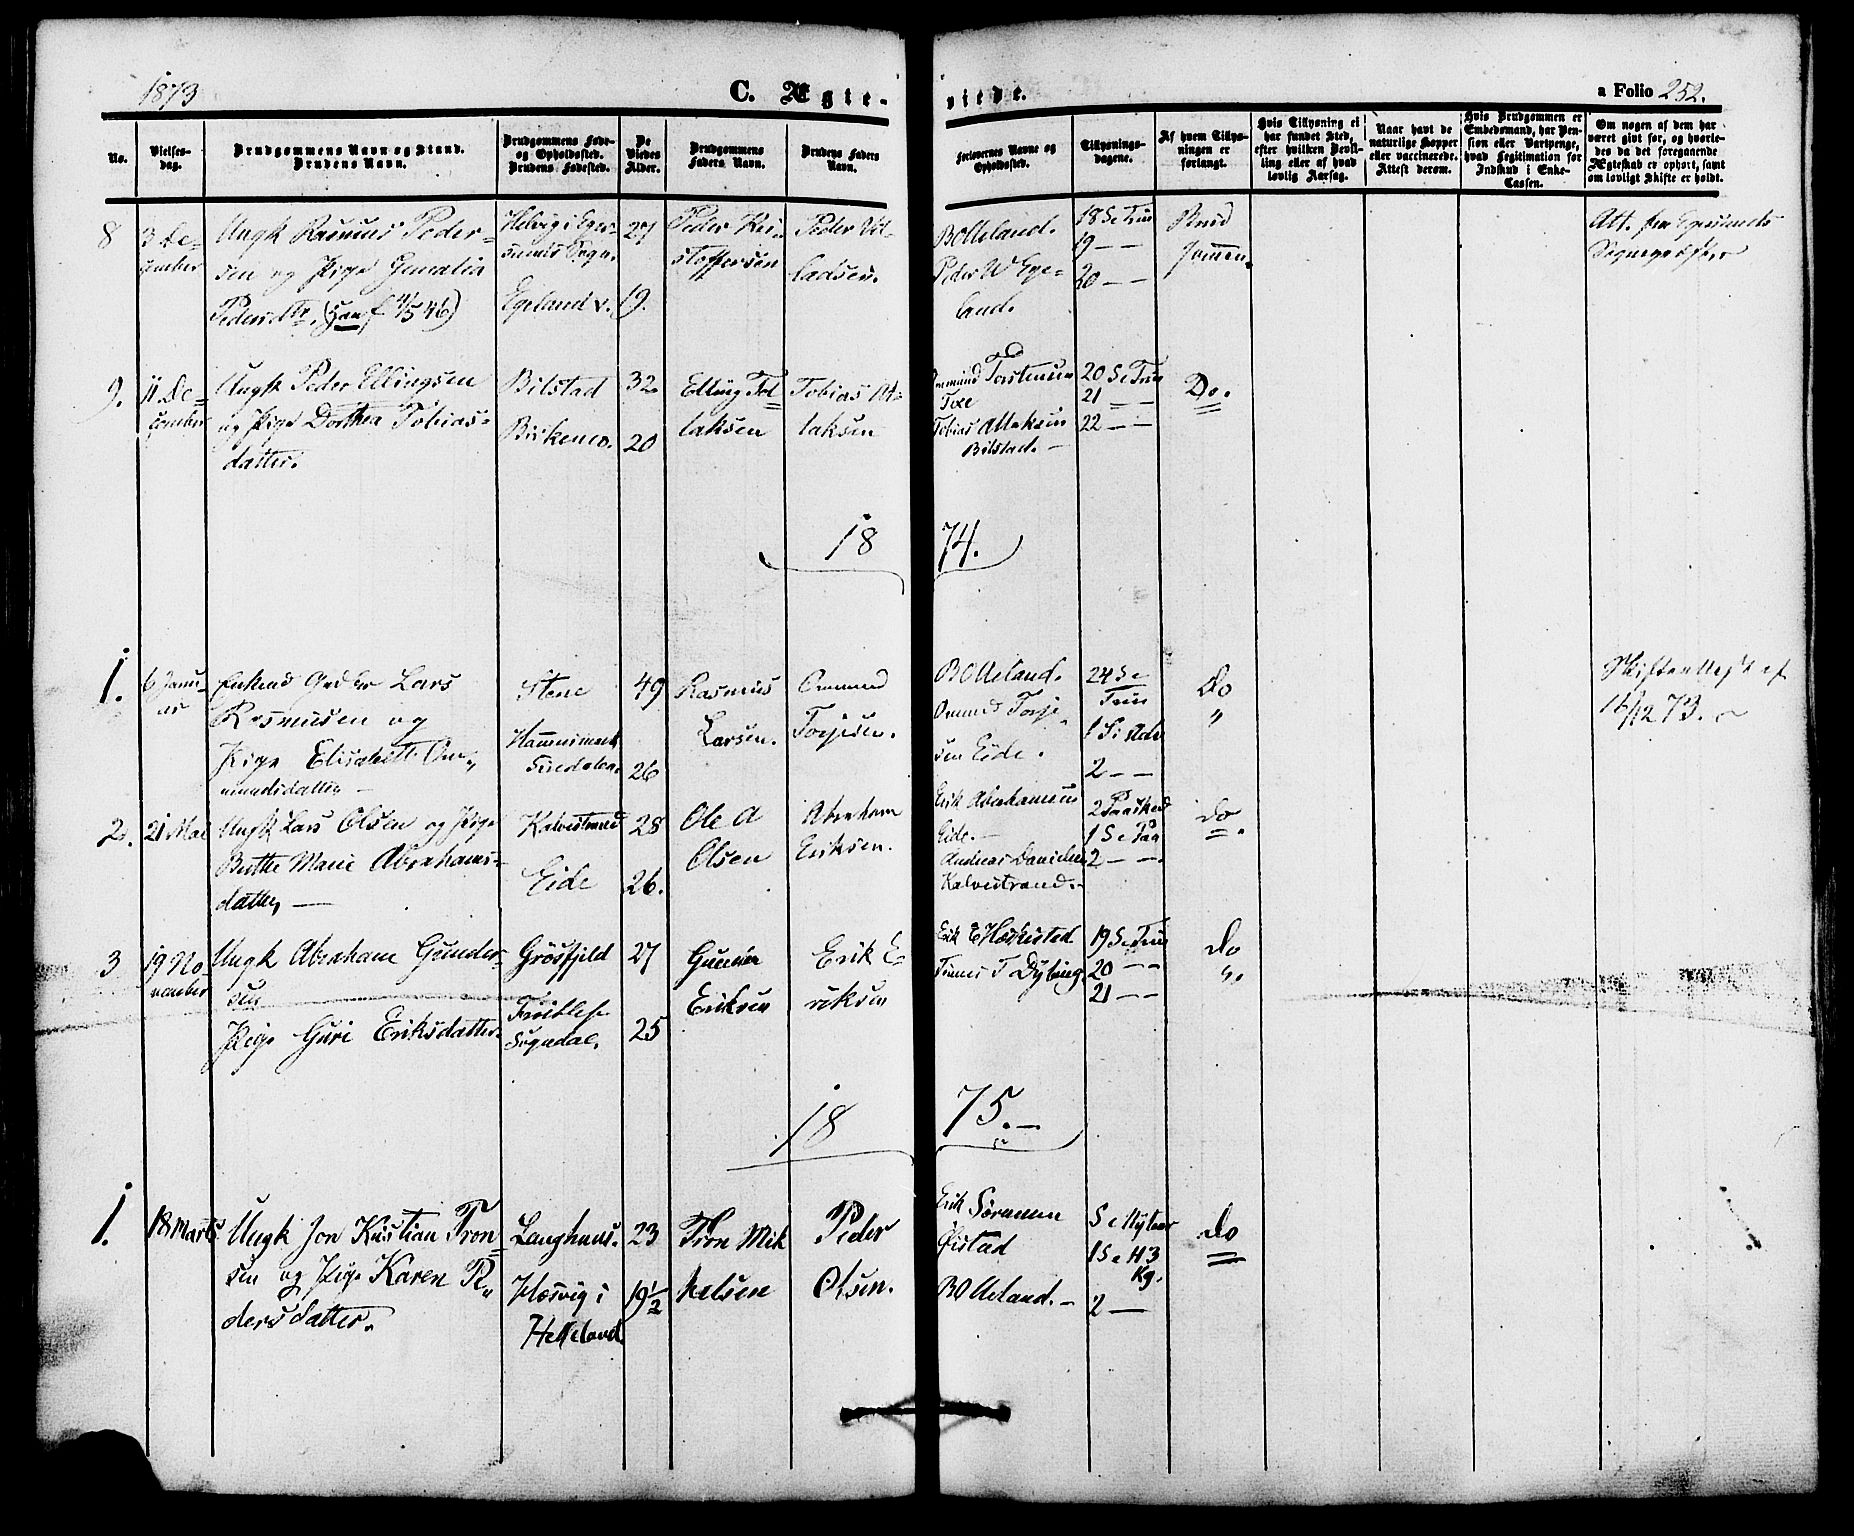 1873
C. Ægte-
viede.
a Folio 252.
No.
Vielses-
dag.
Brudgommens Navn og Stand.
Brudens Navn.
Brudgommens Føde-
og Opholdssted.
Brudens Fødested.
De
Viedes
Alder.
Brudgommens
Faders Navn.
Brudens Faders
Navn.
Forlovernes Navne og
Opholdssted.
Tillysnings-
dagene.
Af hvem Tillys-
ningen er
forlangt.
Hvis Tillysning ei
har fundet Sted,
efter hvilken Bevil-
ling eller af hvad
lovlig Aarsag.
Naar havt de
naturlige Kopper
eller vaccinerede.
Attest derom.
Hvis Brudgommen er
Embedsmand, har Pen-
sion eller Vartpenge,
hvad Legitimation for
Indskud i Enke-
Cassen.
Om nogen af dem har
været givt før, og hvorle-
des da det foregaaende
Ægteskab er ophørt, samt
om lovligt Skifte er holdt.
8
3 De-
cember
Ungk Rasmus Peder-
sen og Pige
Pedersdtr. (Han f 4/5 46)
Helvig i Eger-
sunds Sogn.
Egeland v.
27
19.
Peder Kri-
stoffersen
Peder Vil-
ladsen.
B O Ueland.
Peder W Ege-
land.
18 S e Trin
19 — —
20 — —
Brud
gommen.
Att. fra Egersunds
Sognepræst
9.
11 De-
cember
Ungk Peder Ellingsen
og Pige Dorthea Tobias-
datter.
Bilstad
Birkemo.
32
20
Elling Tol-
laksen
Tobias At-
laksen
Ommund Torstensen
Toxe
Tobias Atlaksen
Bilstad. —
20 S e Trin
21 — —
22 — —
Do.
1874.
1.
6 Janu-
ar
Enkemd Grdbr Lars
Rasmusen og
Pige Elisabeth Om-
mundsdatter —
Stene
49
26
Rasmus
Larsen.
Ommund
Torjesen.
B O Ueland.
Omund Torje
sen Eide.
24 S e
Trin
1 S i Adv
2 — —
Do
"
Skifteattest af
16/12 73.
2.
21 Mai
Ungk Lars Olsen og Pige
Berthe Marie Abrahams-
datter, —
Kalvestrand
Eide
28
26.
Ole A
Olsen
Abraham
Eriksen.
Erik Abrahamsen
Eide. —
Andreas Danielsen
Kalvestrand.
2 Paasked
1 S e Paa
2 — —
Do
3
19 No-
vember
Ungk Abraham Gunder-
sen
Pige Guri Eriksdatter.
Grøsfjeld
Sogndal.
27
25
Gunder
Eriksen
Erik E-
riksen
Erik E
Tønnes T Dybing
19 S e Trin
20 — —
21 — —
Do
"
1875. —
1.
18 Marts
Ungk Jon Kristian Tron-
sen og Pige Karen Pe-
dersdatter.
Langhuus.
Høsvig i
Helleland
23
19 1/2
Tron Mik
kelsen
Peder
Olsen.
Erik Sørensen
Øistad
B O Ueland. —
S e Nytaar
1 S e H 3
Kg.
2 —
Do